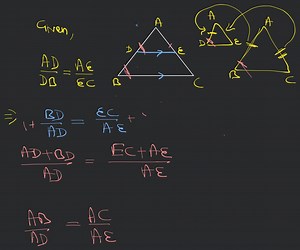 Given,
AD/DB = AE/EC
A
D E
B C
A
D E
A
B C
⇒ 1+ BD/AD = EC/AE + 1
AD+BD/AD = EC+AE/AE
AB/AD = AC/AE